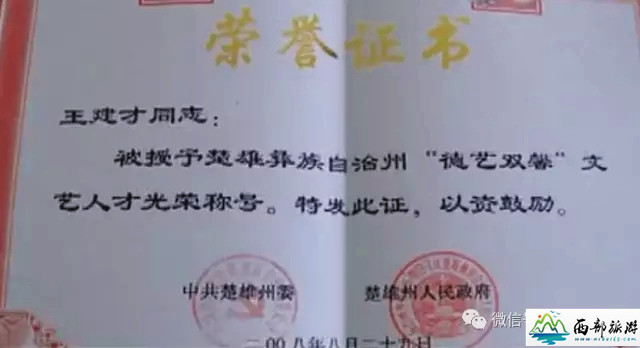 荣誉证书
王建才同志：
被授予楚雄彝族自治州“德艺双馨”文
艺人才光荣称号。特发此证，以资鼓励。
中共楚雄州委 楚雄州人民政府
二〇〇八年八月二十九日
微信
西部旅游